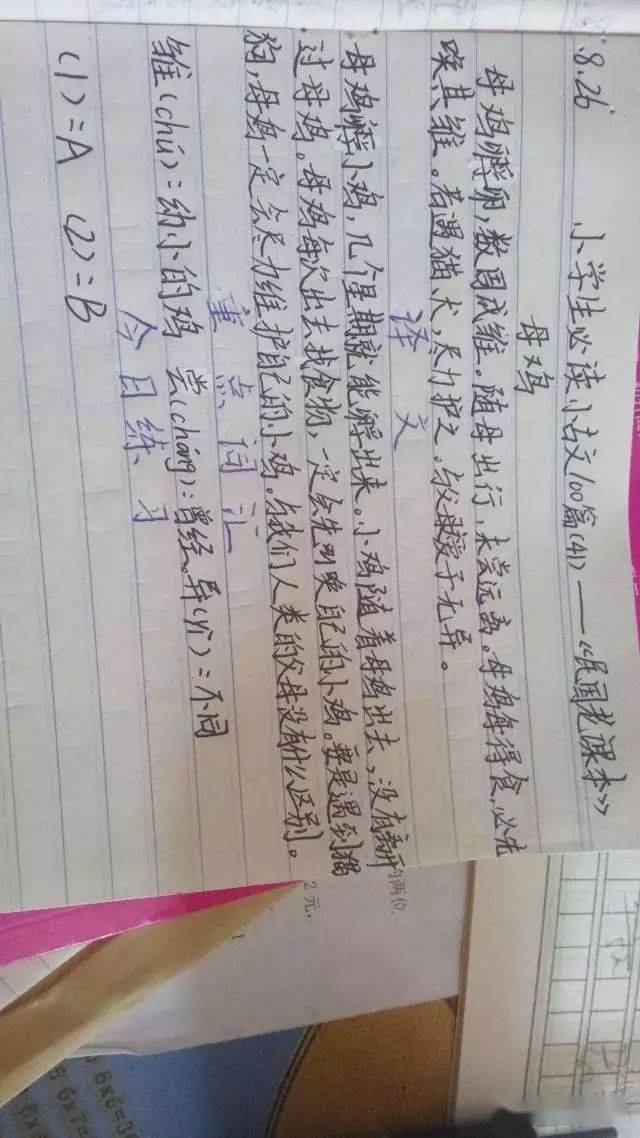 8.26 小学生必读小古文100篇(41)——《民国老课本》
母鸡
母鸡孵卵,数周成雏。随母出行,未尝远离。母鸡每得食,必先
唤其雏。若遇猫犬,尽力护之。与父母爱子无异。
译文
母鸡孵小鸡,几个星期就能孵出来。小鸡随着母鸡出去,没有离开
过母鸡。母鸡每次出去找食物,一定会先叫唤自己的小鸡。要是遇到猫
狗,母鸡一定会尽力维护自己的小鸡。与我们人类的父母没有什么区别。
重点词汇
雏(chú):幼小的鸡 尝(cháng):曾经。异(yì):不同
今日练习
(1)=A (2)=B
两位
2元.
6×6=3
6×7=